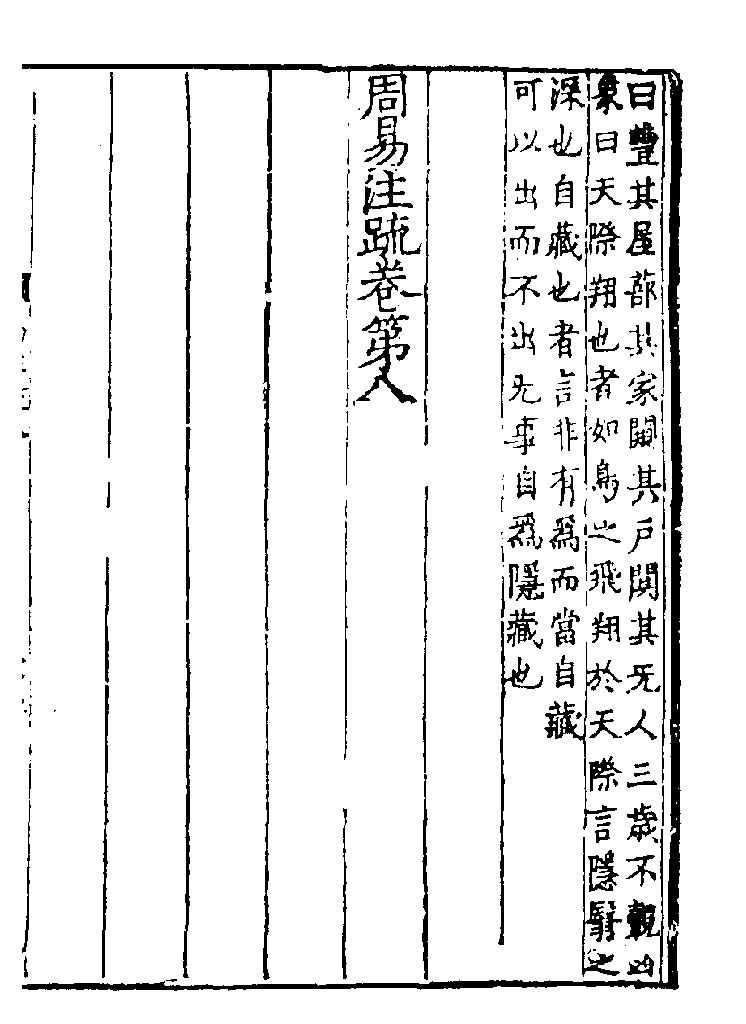 曰豐其屋蔀其家闚其戶闃其无人三歲不覿凶
象曰天際翔也者如鳥之飛翔於天際言隱翳之
深也自藏也者言非有爲而當自藏
可以出而不出无事自爲隱藏也
周易注疏卷第八